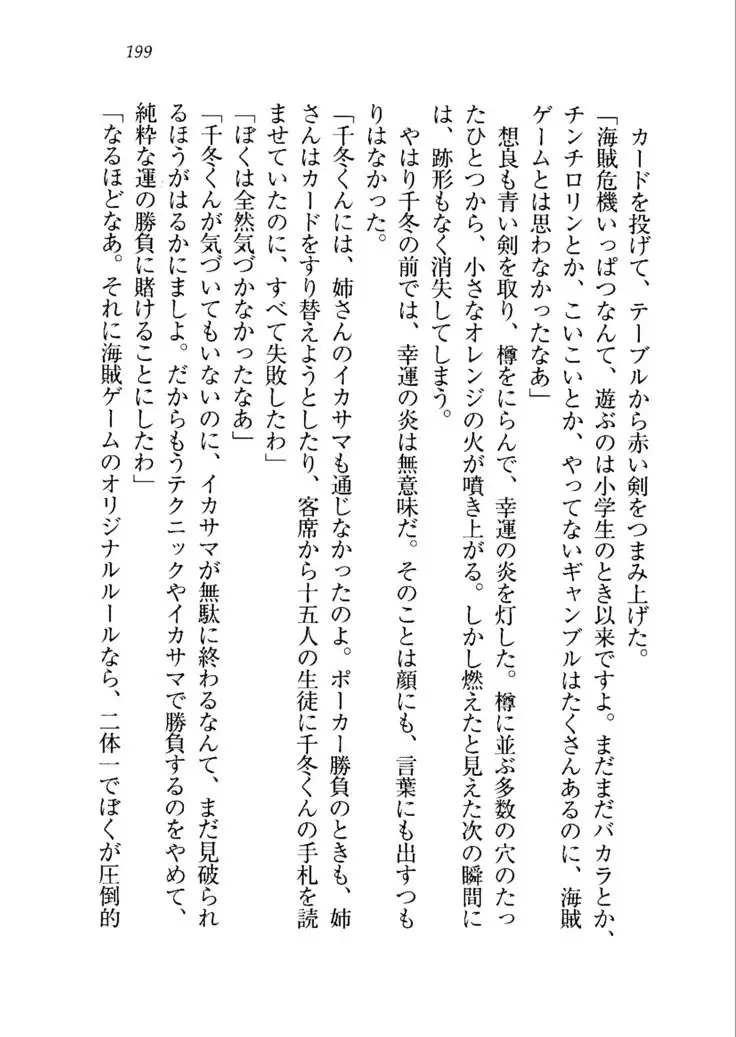 199
カードを投げて、テーブルから赤い剣をつまみ上げた。
「海賊危機いっぱつなんて、遊ぶのは小学生のとき以来ですよ。まだまだバカラとか、
チンチロリンとか、こいこいとか、やってないギャンブルはたくさんあるのに、海賊
ゲームとは思わなかったなあ」
想良も青い剣を取り、樽をにらんで、幸運の炎を灯した。樽に並ぶ多数の穴のたっ
たひとつから、小さなオレンジの火が噴き上がる。しかし燃えたと見えた次の瞬間に
は、跡形もなく消失してしまう。
やはり千冬の前では、幸運の炎は無意味だ。そのことは顔にも、言葉にも出すつも
りはなかった。
「千冬くんには、姉さんのイカサマも通じなかったのよ。ポーカー勝負のときも、姉
さんはカードをすり替えようとしたり、客席から十五人の生徒に千冬くんの手札を読
ませていたのに、すべて失敗したわ」
「ぼくは全然気づかなかったなあ」
「千冬くんが気づいてもいないのに、イカサマが無駄に終わるなんて、まだ見破られ
るほうがはるかにましよ。だからもうテクニックやイカサマで勝負するのをやめて、
純粋な運の勝負に賭けることにしたわ」
「なるほどなあ。それに海賊ゲームのオリジナルルールなら、二体一でぼくが圧倒的